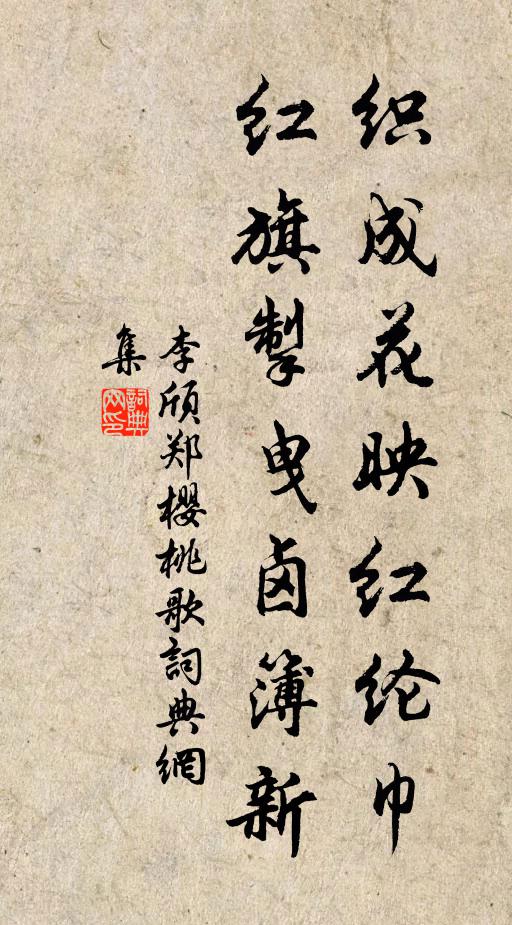 织成花映红纶巾
红旗掣曳卤簿新
李颀郑樱桃歌詞典網
集
詞典
网印